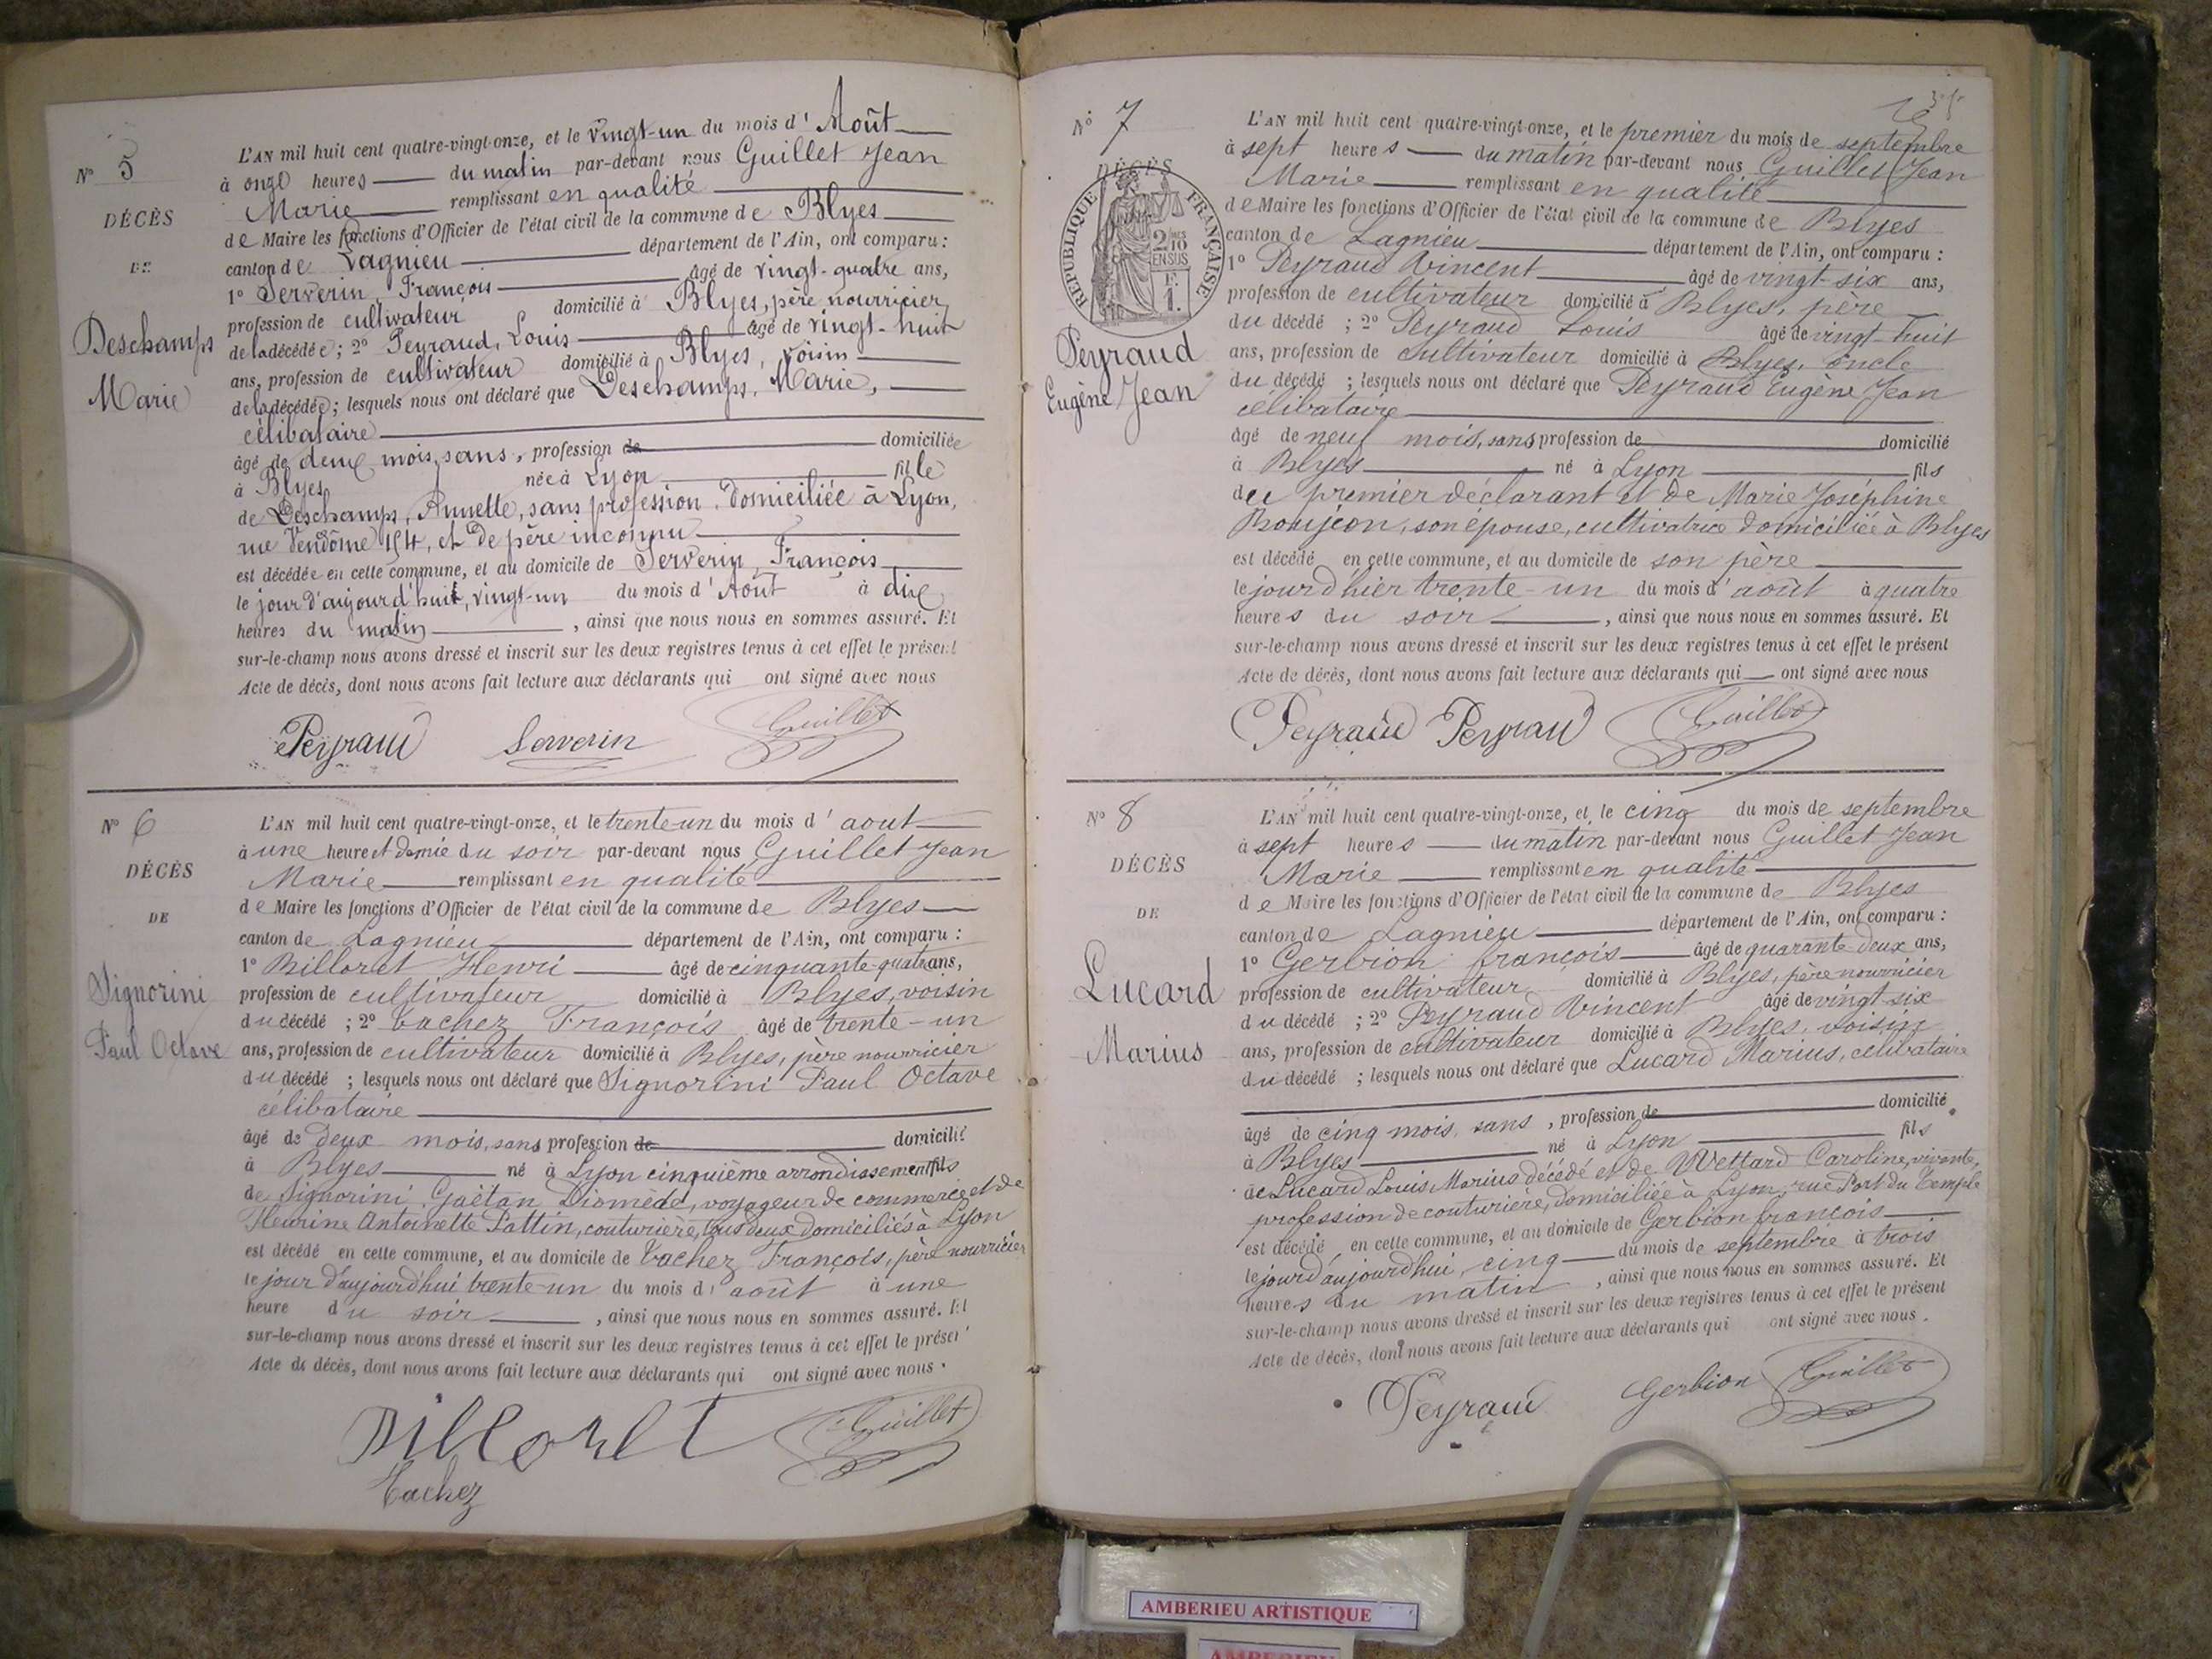 N° 5
DÉCÈS
DE
Deschamps
Marie
L'AN mil huit cent quatre-vingt-onze, et le vingt-un du mois d'Août
à onze heures du matin par-devant nous Guillet Jean
Marie remplissant en qualité
de Maire les fonctions d'Officier de l'état civil de la commune de Blyes
canton de Lagnieu département de l'Ain, ont comparu :
1° Serverin, François âgé de vingt-quatre ans,
profession de cultivateur domicilié à Blyes, père nourricier
de la décédée ; 2° Peyraud, Louis âgé de vingt-huit
ans, profession de cultivateur domicilié à Blyes, voisin
de la décédée ; lesquels nous ont déclaré que Deschamps, Marie,
célibataire
âgé de deux mois, sans, profession de domiciliée
à Blyes née à Lyon fille
de Deschamps, Annette, sans profession, domiciliée à Lyon,
rue Vendôme 154, et de père inconnu
est décédée en cette commune, et au domicile de Serverin, François
le jour d'aujourd'hui, vingt-un du mois d'Août à dix
heures du matin, ainsi que nous nous en sommes assuré. Et
sur-le-champ nous avons dressé et inscrit sur les deux registres tenus à cet effet le présent
Acte de décès, dont nous avons fait lecture aux déclarants qui ont signé avec nous
Peyraud Serverin Guillet
N° 6
DÉCÈS
DE
Signorini
Paul Octave
L'AN mil huit cent quatre-vingt-onze, et le trente-un du mois d'aout
à une heure et demie du soir par-devant nous Guillet Jean
Marie remplissant en qualité
de Maire les fonctions d'Officier de l'état civil de la commune de Blyes
canton de Lagnieu département de l'Ain, ont comparu :
1° Billoret Henri âgé de cinquante-quatre ans,
profession de cultivateur domicilié à Blyes, voisin
du décédé ; 2° Vachez François âgé de trente-un
ans, profession de cultivateur domicilié à Blyes, père nourricier
du décédé ; lesquels nous ont déclaré que Signorini Paul Octave
célibataire
âgé de deux mois, sans profession de domicilié
à Blyes né à Lyon cinquième arrondissement fils
de Signorini Gaëtan Diomède, voyageur de commerce et de
Fleurine Antoinette Pattin, couturière, tous deux domiciliés à Lyon
est décédé en cette commune, et au domicile de Vachez François, père nourricier
le jour d'aujourd'hui trente-un du mois d'août à une
heure du soir, ainsi que nous nous en sommes assuré. Et
sur-le-champ nous avons dressé et inscrit sur les deux registres tenus à cet effet le présen
Acte de décès, dont nous avons fait lecture aux déclarants qui ont signé avec nous.
Billoret Guillet
Vachez
N° 7
DÉCÈS
RÉPUBLIQUE FRANÇAISE
2/10 EN SUS
F. 1.
Peyraud
Eugène Jean
L'AN mil huit cent quatre-vingt-onze, et le premier du mois de septembre
à sept heures du matin par-devant nous Guillet Jean
Marie remplissant en qualité
de Maire les fonctions d'Officier de l'état civil de la commune de Blyes
canton de Lagnieu département de l'Ain, ont comparu :
1° Peyraud Vincent, âgé de vingt-six ans,
profession de cultivateur domicilié à Blyes, père
du décédé ; 2° Peyraud Louis âgé de vingt-huit
ans, profession de cultivateur domicilié à Blyes, oncle
du décédé ; lesquels nous ont déclaré que Peyraud Eugène Jean
célibataire
âgé de neuf mois, sans profession de domicilié
à Blyes né à Lyon fils
du premier déclarant et de Marie Joséphine
Boujeon, son épouse, cultivatrice domiciliée à Blyes
est décédé en cette commune, et au domicile de son père
le jour d'hier trente-un du mois d'août à quatre
heures du soir, ainsi que nous nous en sommes assuré. Et
sur-le-champ nous avons dressé et inscrit sur les deux registres tenus à cet effet le présent
Acte de décès, dont nous avons fait lecture aux déclarants qui ont signé avec nous
Peyraud Peyraud Guillet
N° 8
DÉCÈS
DE
Lucard
Marius
L'AN mil huit cent quatre-vingt-onze, et le cinq du mois de septembre
à sept heures du matin par-devant nous Guillet Jean
Marie remplissant en qualité
de Maire les fonctions d'Officier de l'état civil de la commune de Blyes
canton de Lagnieu département de l'Ain, ont comparu :
1° Gerbion françois âgé de quarante-deux ans,
profession de cultivateur domicilié à Blyes, père nourricier
du décédé ; 2° Peyraud Vincent âgé de vingt-six
ans, profession de cultivateur domicilié à Blyes, voisin
du décédé ; lesquels nous ont déclaré que Lucard Marius, célibataire
âgé de cinq mois, sans, profession de domicilié
à Blyes né à Lyon fils
de Lucard Louis Marius décédé et de Wettard Caroline, vivante,
profession de couturière, domiciliée à Lyon, rue Port du Temple
est décédé en cette commune, et au domicile de Gerbion françois
le jour d'aujourd'hui, cinq du mois de septembre à trois
heures du matin, ainsi que nous nous en sommes assuré. Et
sur-le-champ nous avons dressé et inscrit sur les deux registres tenus à cet effet le présent
Acte de décès, dont nous avons fait lecture aux déclarants qui ont signé avec nous.
Peyraud Gerbion Guillet
AMBERIEU ARTISTIQUE
AMBERIEU